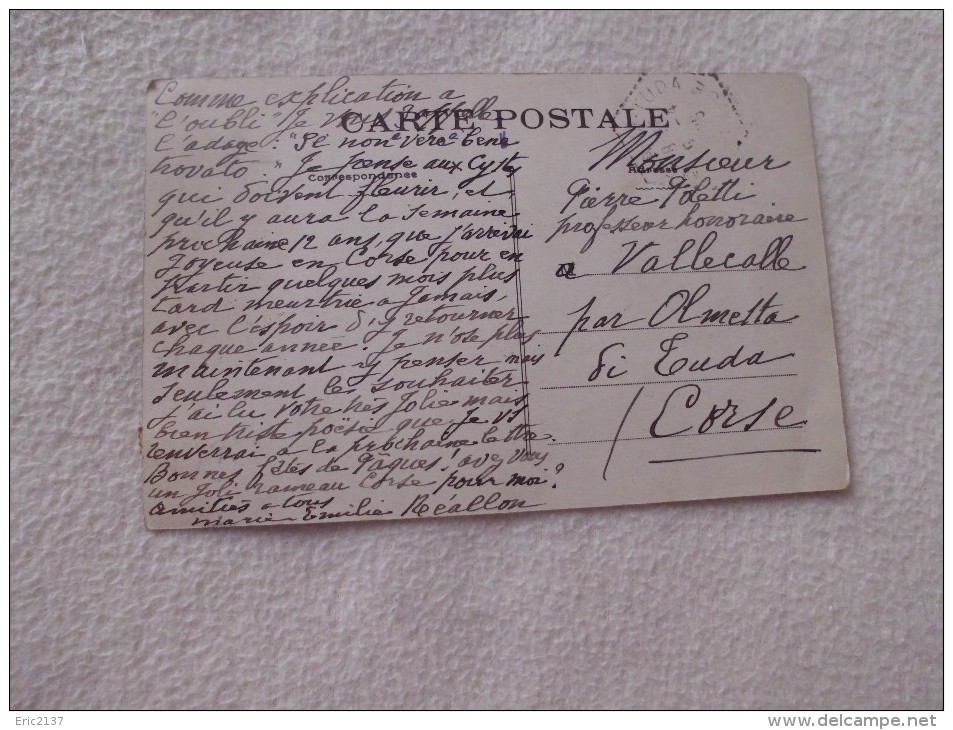 CARTE POSTALE
Correspondance
Adresse
Comme explication a
"l'oubli" Je vous rappelle
l'adage : "Se non è vero è bene
trovato." Je pense aux Cystes
qui doivent fleurir, et
qu'il y aura la semaine
prochaine 12 ans, que j'arrivai
Joyeuse en Corse pour en
partir quelques mois plus
tard meurtrie a Jamais,
avec l'espoir d'y retourner
chaque année. Je n'ose plus
maintenant y penser mais
seulement le souhaiter
J'ai lu votre très Jolie mais
bien triste poësie que Je vs
enverrai a la prochaine lettre.
Bonnes fêtes de Pâques! avez vous
un Joli rameau Corse pour moi?
Amitiés a tous
marie Emilie Réallon
Monsieur
Pierre Poletti
professeur honoraire
a Vallecalle
par Olmetta
di Tuda
Corse
TUDA
Eric2137
delcampe.net